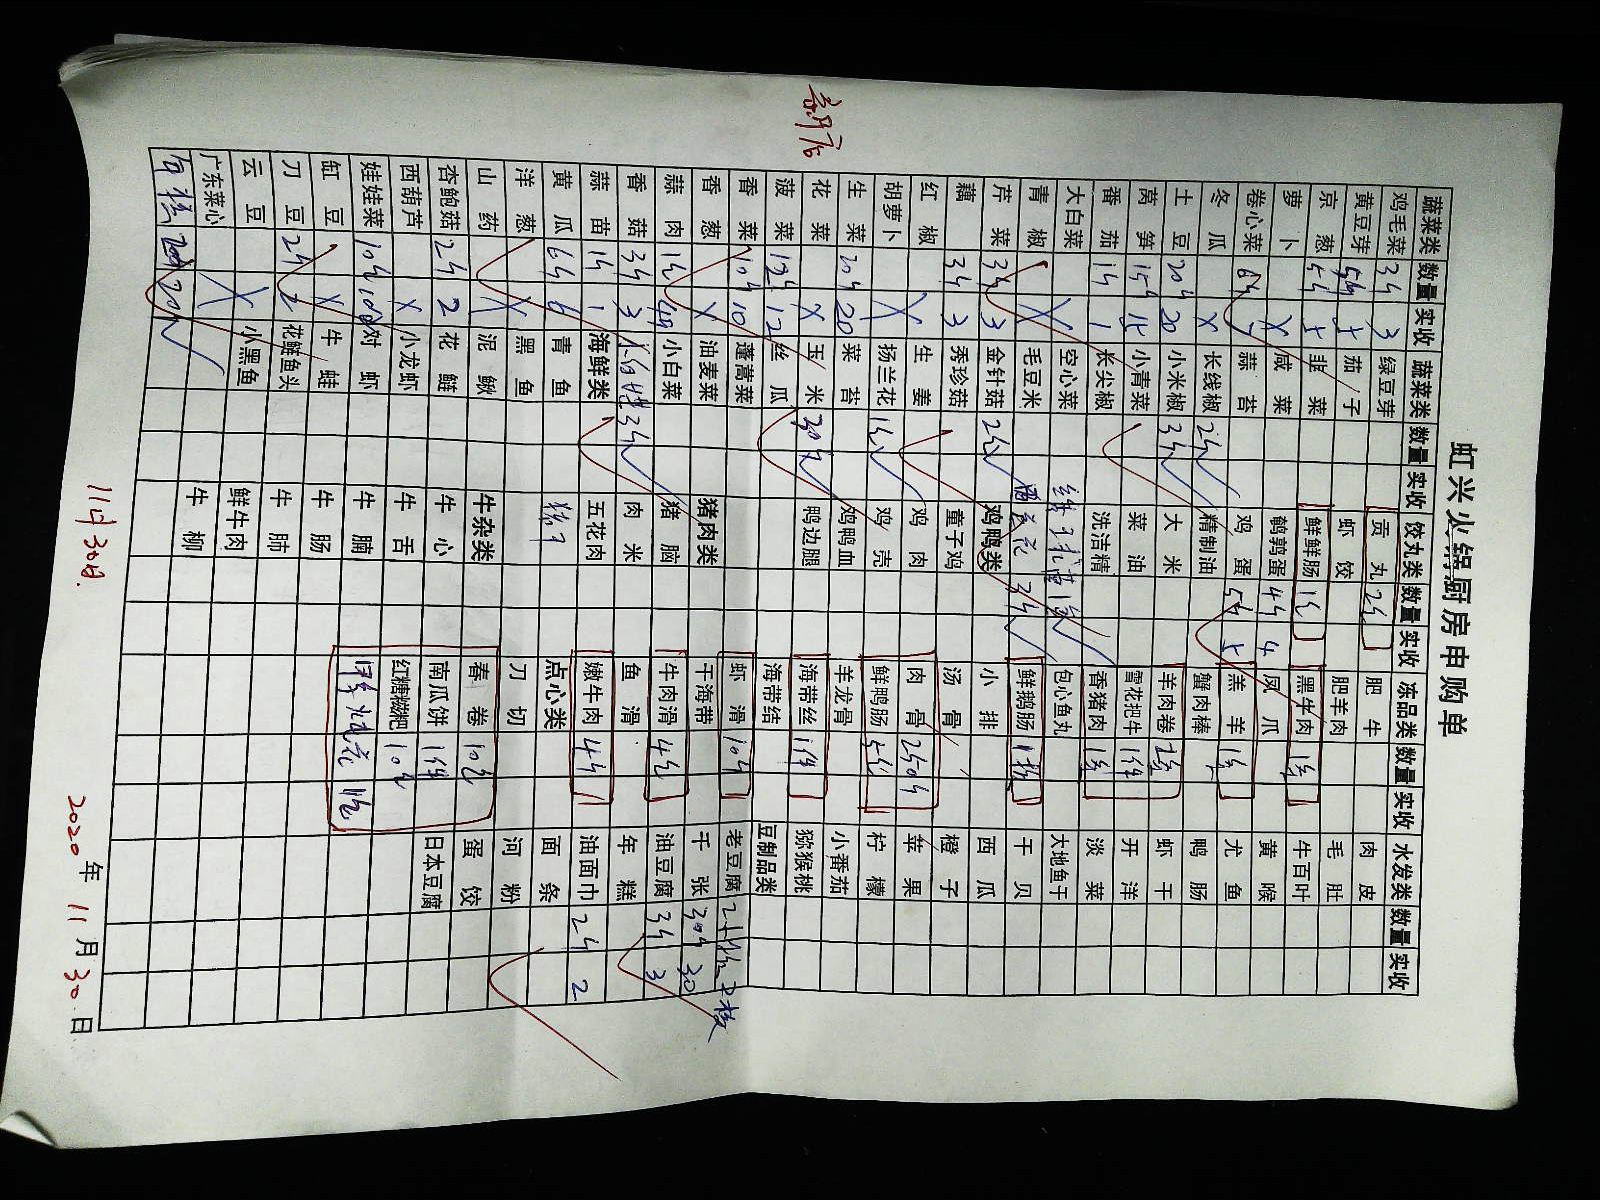 虹兴火锅厨房申购单
蔬菜类 数量 实收 蔬菜类 数量 实收 饺丸类 数量 实收 冻品类 数量 实收 水发类 数量 实收
鸡毛菜 3斤 3 绿豆芽 贡丸 2包 肥牛 肉皮
黄豆芽 5斤 5 茄子 虾饺 肥羊肉 毛肚
京葱 5斤 5 韭菜 鲜鲜肠 1包 黑牛肉 1件 牛百叶
萝卜 X 咸菜 鹌鹑蛋 4斤 4 凤爪 黄喉
卷心菜 6斤 蒜苔 鸡蛋 5斤 5 羔羊 1件 尤鱼
冬瓜 X 长线椒 2斤 精制油 蟹肉棒 鸭肠
土豆 20斤 20 小米椒 3斤 大米 羊肉卷 2件 虾干
莴笋 15斤 15 小青菜 菜油 雪花把牛 1件 开洋
番茄 1斤 1 长尖椒 洗洁精 香猪肉 1件 淡菜
大白菜 X 空心菜 包心鱼丸 大地鱼干
青椒 X 毛豆米 3斤 鲜鹅肠 干贝
芹菜 3斤 3 金针菇 2斤 鸡鸭类 小排 西瓜
藕 3斤 3 秀珍菇 童子鸡 汤骨 橙子
红椒 X 生姜 鸡肉 肉骨 苹果
胡萝卜 扬兰花 鸡壳 鲜鸭肠 柠檬
生菜 20斤 20 菜苔 鸡鸭血 羊龙骨 小番茄
花菜 X 玉米 30斤 鸭边腿 海带丝 1件 猕猴桃
菠菜 12斤 12 丝瓜 海带结 豆制品类
香菜 10斤 10 蓬蒿菜 虾滑 10斤 老豆腐
香葱 X 油麦菜 猪肉类 干海带 千张 30斤 30
蒜肉 小白菜 猪脑 牛肉滑 4包 油豆腐 3斤 3
香菇 3斤 3 3斤 肉米 鱼滑 年糕
蒜苗 1斤 1 海鲜类 五花肉 嫩牛肉 4斤 油面巾 2斤 2
黄瓜 6斤 6 青鱼 点心类 面条
洋葱 X 黑鱼 刀切 河粉
山药 X 泥鳅 牛杂类 春卷 10包 蛋饺
杏鲍菇 2斤 2 花鲢 牛心 南瓜饼 1件 日本豆腐
西葫芦 X 小龙虾 牛舌 红糖糍粑 10包
娃娃菜 10斤 10 对虾 牛腩
缸豆 X 牛蛙 牛肠
刀豆 2斤 2 花鲢鱼头 牛肺
云豆 X 小黑鱼 鲜牛肉
广东菜心 X 牛柳
11月30日.
2020年11月30日